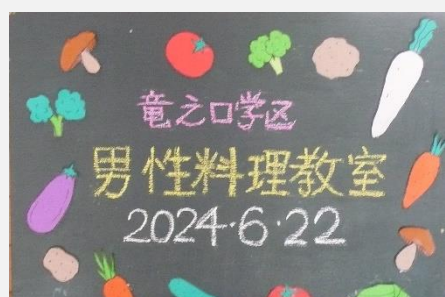 竜之口学区
男性料理教室
2024·6·22